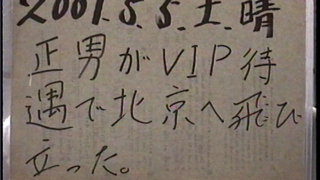 2001.5.5.土.晴
正男がVIP待
遇で北京へ飛び
立った。